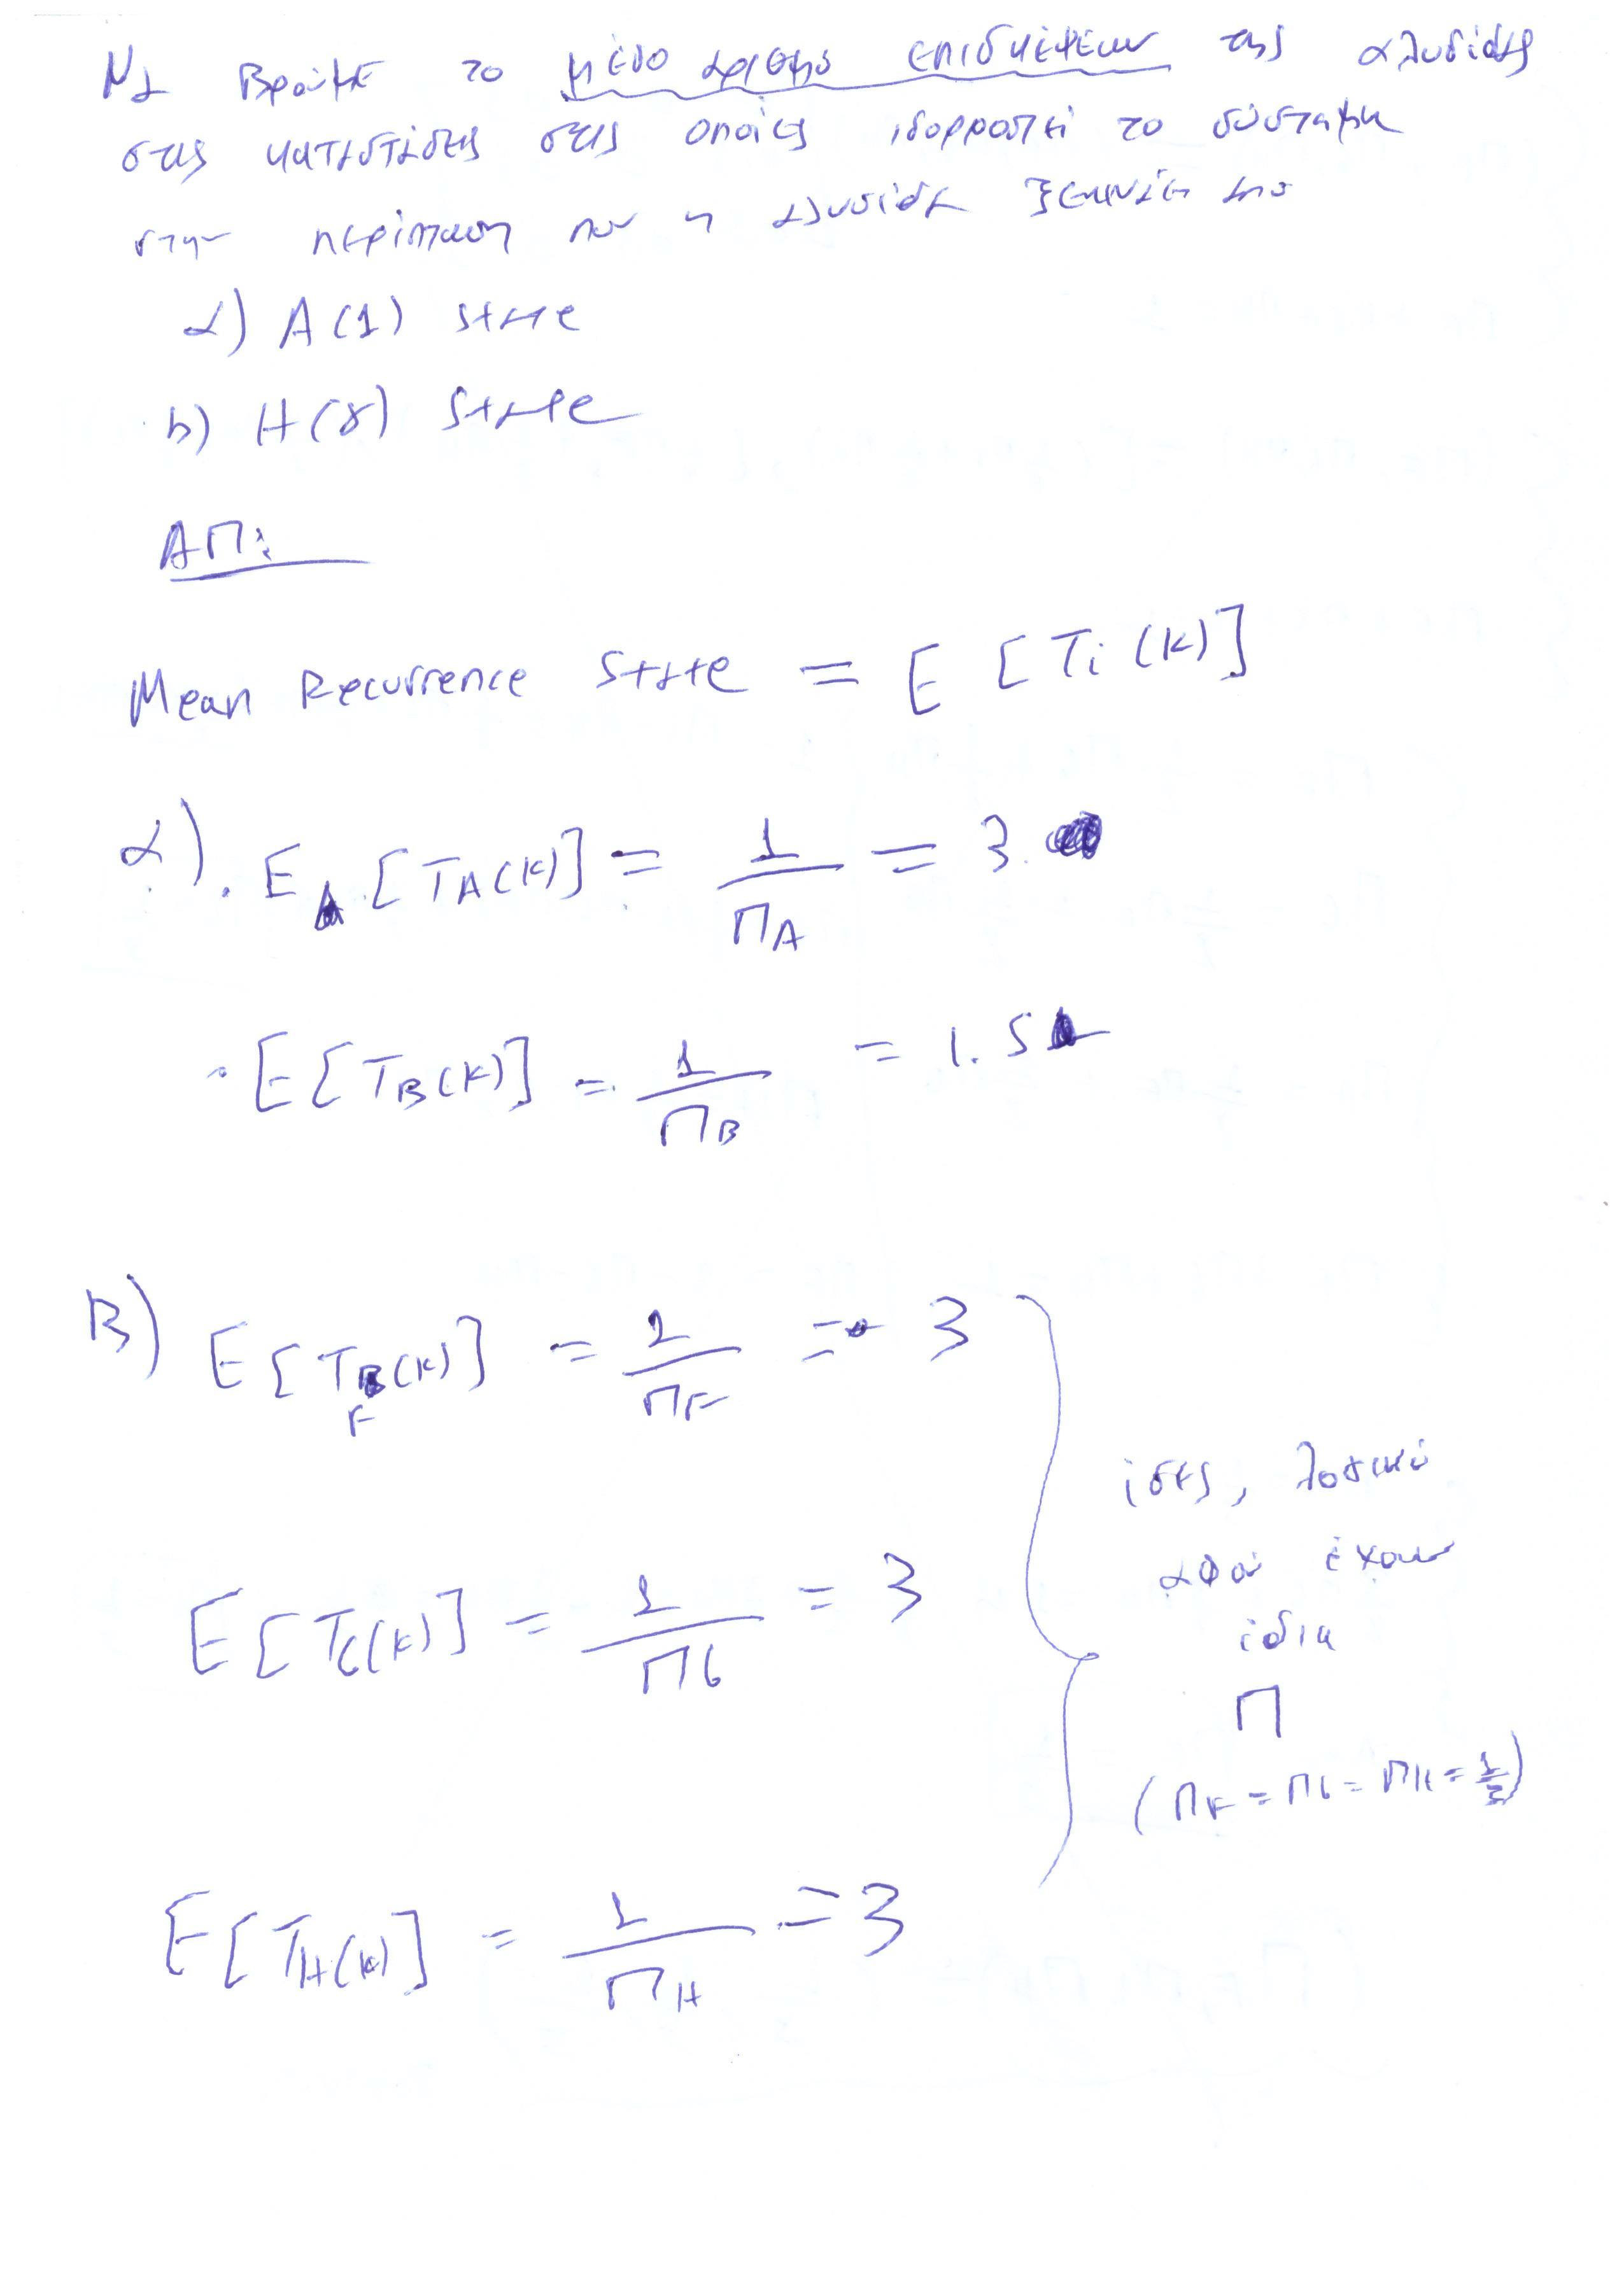 Να βρούμε το μέσο αριθμό επισκέψεων της αλυσίδας
στις καταστάσεις στις οποίες ισορροπεί το σύστημα
στην περίπτωση που η αλυσίδα ξεκινάει από
α) A(1) state
b) H(8) state
ΑΠ:
Mean Recurrence State = E [Ti(k)]
α). E_A [T_A(k)] = 1/Π_A = 3
· E[T_B(k)] = 1/Π_B = 1.5
B) E[T_F(k)] = 1/Π_F = 3
E[T_G(k)] = 1/Π_G = 3
E[T_H(k)] = 1/Π_H = 3
ίσες, λογικό
αφού έχουν
ίδια
Π
(Π_F = Π_G = Π_H = 1/3)